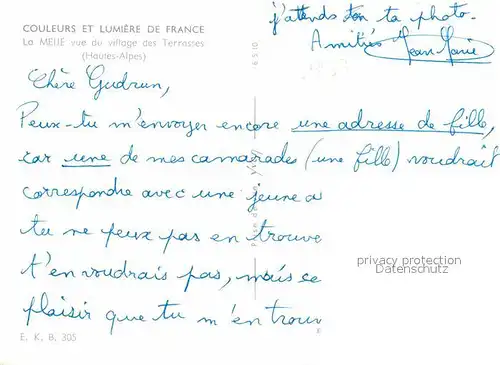 COULEURS ET LUMIÈRE DE FRANCE
La MEIJE vue du village des Terrasses
(Hautes-Alpes)
j'attends ton ta photo.
Amitiés Jean Marie
Chère Gudrun,
Peux-tu m'envoyer encore une adresse de fille,
car une de mes camarades (une fille) voudrait
correspondre avec une jeune a
tu ne peux pas en trouve
t'en voudrais pas, mais ce
plaisir que tu m'en trouv
privacy protection
Datenschutz
E. K. B. 305